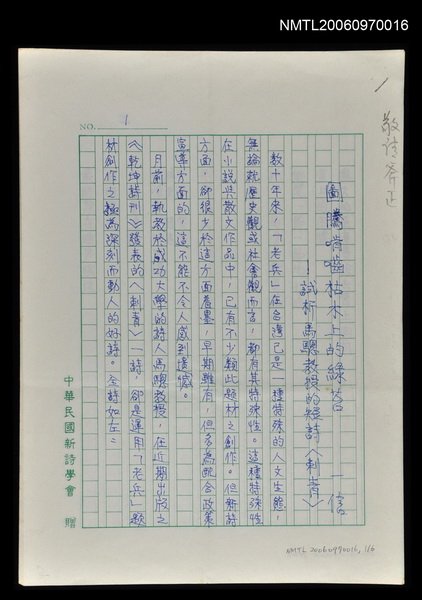 NMTL20060970016
敬請斧正
NO. 1
圖騰啃嚙枯木上的綠苔
——試析馬驄教授的短詩〈刺青〉
一信
數十年來,「老兵」在台灣已是一種特殊的人文生態,
無論就歷史觀或社會觀而言,都有其特殊性。這種特殊性
在小說與散文作品中,已有不少類此題材之創作。但新詩
方面,卻很少於這方面着墨,早期雖有,但多為配合政策
宣導方面的,這不能不令人感到遺憾。
月前,執教於成功大學的詩人馬驄教授,在近期出版之
《乾坤詩刊》發表的〈刺青〉一詩,卻是運用「老兵」題
材創作之極為深刻而動人的好詩。全詩如左:
中華民國新詩學會 贈
NMTL20060970016, 1/6